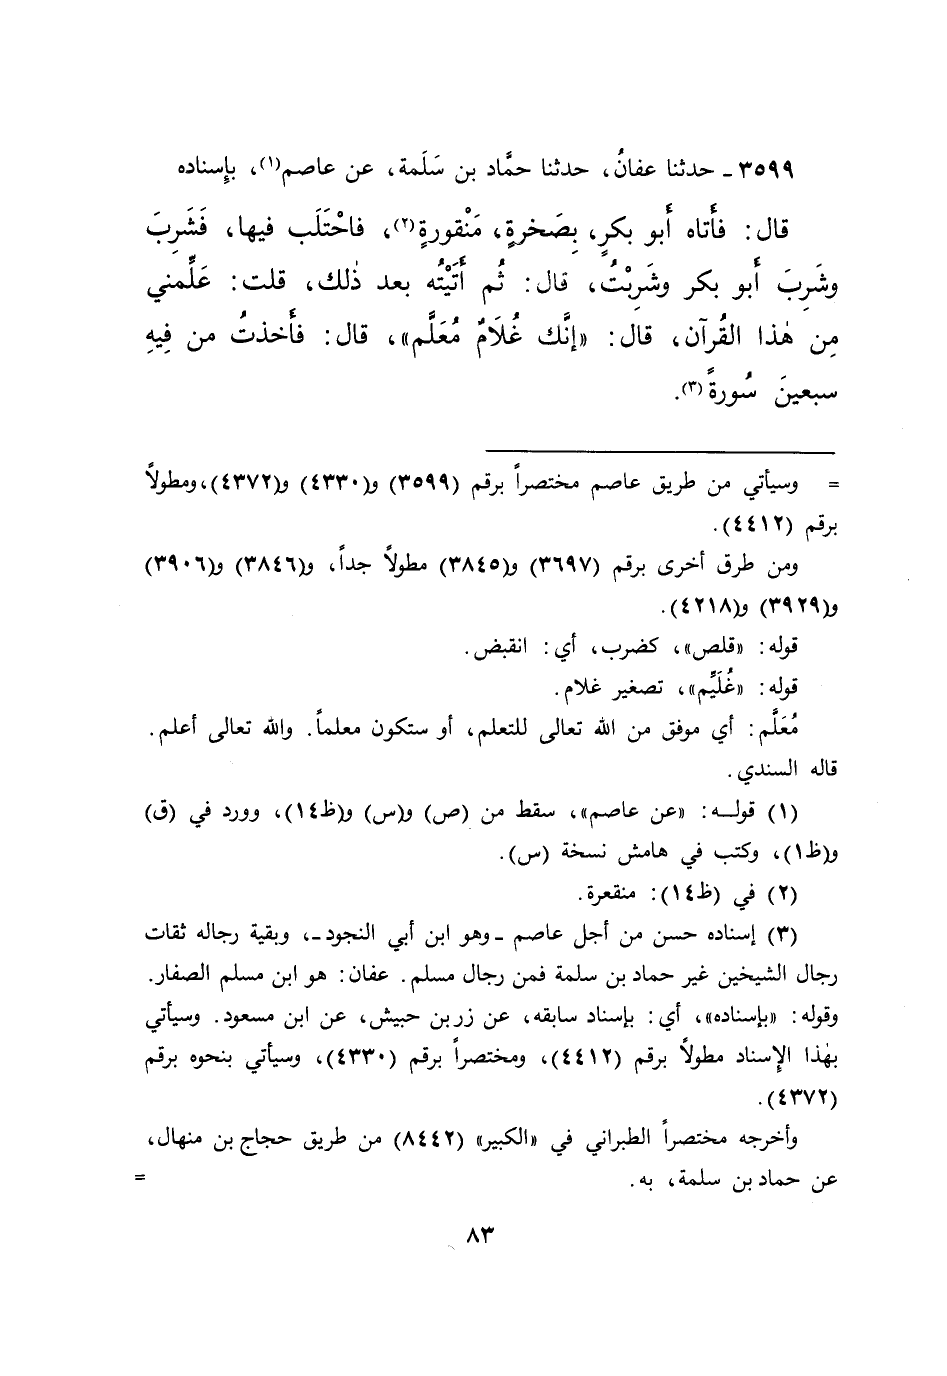 ٣٥٩٩ ـ حدثنا عفانُ، حدثنا حمَّاد بن سَلَمة، عن عاصم(١)، بإِسناده
قال: فأَتاه أَبو بكرٍ، بِصَخرةٍ، مَنْقورةٍ(٢)، فاحْتَلَب فيها، فَشَرِبَ
وشَرِبَ أَبو بكر وشَرِبْتُ، قال: ثُم أَتَيْتُه بعد ذٰلك، قلت: عَلِّمني
مِن هٰذا القُرآن، قال: «إنَّك غُلَامٌ مُعَلَّم»، قال: فأَخذتُ من فِيهِ
سبعينَ سُورةً(٣).
= وسيأتي من طريق عاصم مختصراً برقم (٣٥٩٩) و(٤٣٣٠) و(٤٣٧٢)، ومطولاً
برقم (٤٤١٢).
ومن طرق أخرى برقم (٣٦٩٧) و(٣٨٤٥) مطولاً جداً، و(٣٨٤٦) و(٣٩٠٦)
و(٣٩٢٩) و(٤٢١٨).
قوله: «قلص»، كضرب، أي: انقبض.
قوله: «غُلَيِّم»، تصغير غلام.
مُعَلَّم: أي موفق من الله تعالى للتعلم، أو ستكون معلماً. والله تعالى أعلم.
قاله السندي.
(١) قولـه: «عن عاصم»، سقط من (ص) و(س) و(ظ١٤)، وورد في (ق)
و(ظ١)، وكتب في هامش نسخة (س).
(٢) في (ظ١٤): منقعرة.
(٣) إسناده حسن من أجل عاصم ـ وهو ابن أبي النجود ـ، وبقية رجاله ثقات
رجال الشيخين غير حماد بن سلمة فمن رجال مسلم. عفان: هو ابن مسلم الصفار.
وقوله: «بإسناده»، أي: بإسناد سابقه، عن زر بن حبيش، عن ابن مسعود. وسيأتي
بهٰذا الإسناد مطولاً برقم (٤٤١٢)، ومختصراً برقم (٤٣٣٠)، وسيأتي بنحوه برقم
(٤٣٧٢).
وأخرجه مختصراً الطبراني في «الكبير» (٨٤٤٢) من طريق حجاج بن منهال،
عن حماد بن سلمة، به. =
٨٣